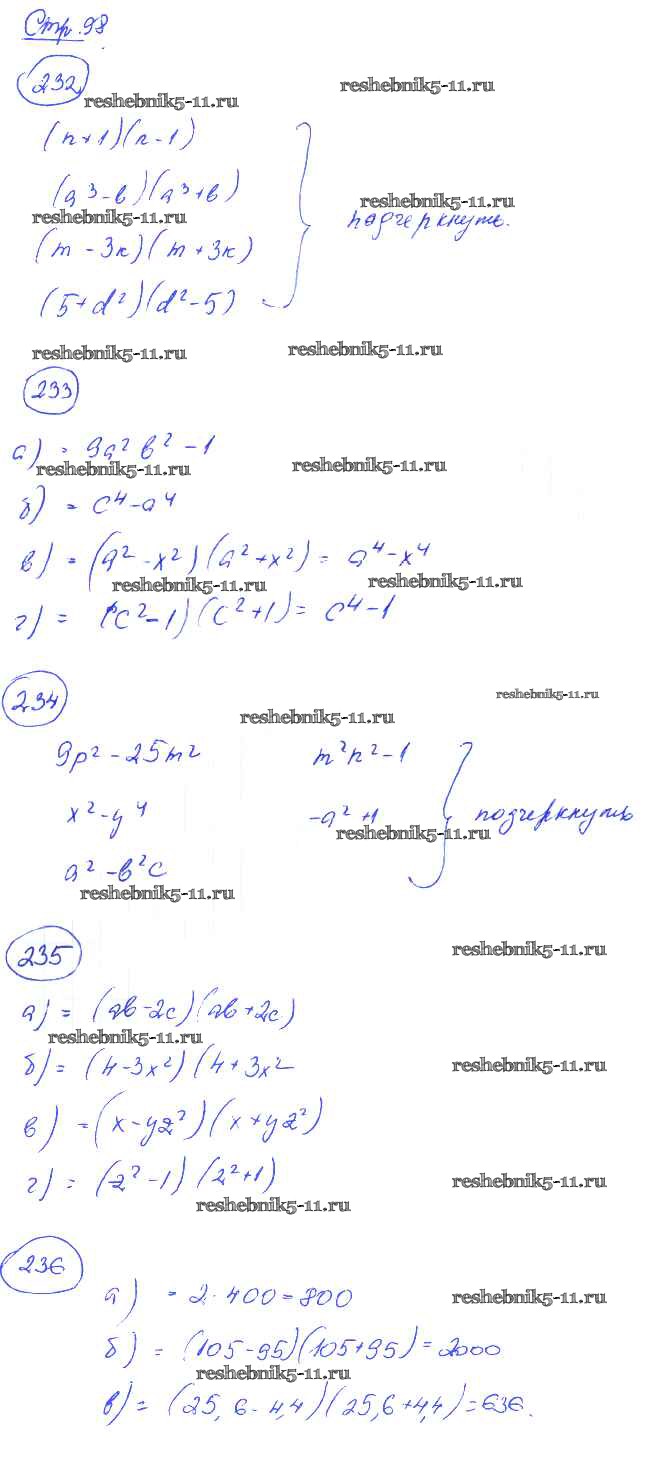 Стр. 98
232
reshebnik5-11.ru
reshebnik5-11.ru
(n+1)(n-1)
(a³-в)(a³+в)
reshebnik5-11.ru
reshebnik5-11.ru
подчеркнуть.
(m-3к)(m+3к)
(5+d²)(d²-5)
reshebnik5-11.ru
reshebnik5-11.ru
233
а) = 9a²в²-1
reshebnik5-11.ru
reshebnik5-11.ru
б) = c⁴-a⁴
в) = (a²-x²)(a²+x²) = a⁴-x⁴
reshebnik5-11.ru
reshebnik5-11.ru
г) = (c²-1)(c²+1) = c⁴-1
234
reshebnik5-11.ru
reshebnik5-11.ru
9p²-25m² m²n²-1
x²-y⁴ -a²+1 подчеркнуть
reshebnik5-11.ru
a²-в²c
reshebnik5-11.ru
235
reshebnik5-11.ru
а) = (ав-2c)(ав+2c)
reshebnik5-11.ru
б) = (4-3x²)(4+3x²
reshebnik5-11.ru
в) = (x-yz²)(x+yz²)
г) = (z²-1)(z²+1)
reshebnik5-11.ru
reshebnik5-11.ru
236
а) = 2·400=800
reshebnik5-11.ru
б) = (105-95)(105+95)=2000
reshebnik5-11.ru
в) = (25,6-4,4)(25,6+4,4)=636.